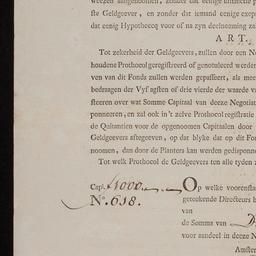 weezen aangenoomen, zonder dat eenige
ste Geldgever, en zonder dat iemand eenige
dat eenig Hypotheecq voor of na zyn deelneeming
ART.
Tot zekerheid der Geldgeevers, zullen door een No
houdene Prothocol geregistreerd of genotuleerd werden
ven van dit Fonds zullen werden gepasseert, als mee
bedraagen der Vyf agtsten of drie vierde der waarde v
steeren over wat Somme Capitaal van deeze Negotiat
ponneeren, en zal ook in 't zelve Prothocol registratie
de Quitantien voor de opgenoomen Capitaalen door
Geldgeevers afgegeven, op dat blyke dat op dit Fond
noomen, dan door de Planters kan werden gedisponne
Tot welk Prothocol de Geldgeevers ten alle tyden
Capl. f 1000.
No. 618.
Op welke voorenstaa
geteekende Directeurs b
van
de Somma van
voor aandeel in deeze N
Amster